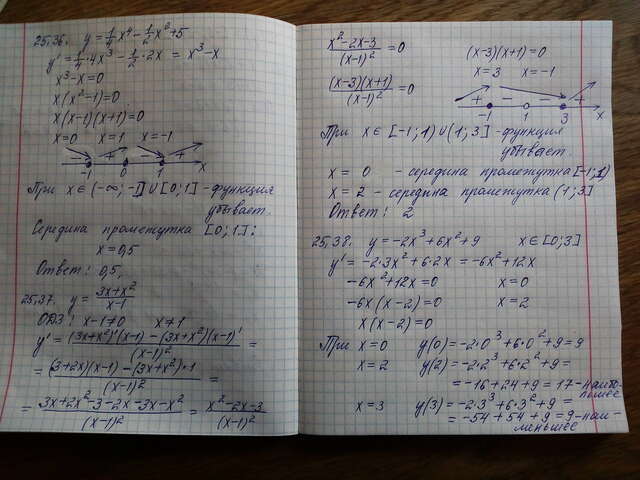 25.36. y = 1/4 x⁴ - 1/2 x² + 5
y' = 1/4 · 4x³ - 1/2 · 2x = x³ - x
x³ - x = 0
x(x² - 1) = 0
x(x - 1)(x + 1) = 0
x = 0 x = 1 x = -1
- + - +
-1 0 1 x
При x ∈ (-∞; -1] ∪ [0; 1] - функция
убывает.
Середина промежутка [0; 1]:
x = 0,5
Ответ: 0,5.
25.37. y = (3x + x²)/(x - 1)
ОДЗ: x - 1 ≠ 0 x ≠ 1
y' = ((3x + x²)'(x - 1) - (3x + x²)(x - 1)')/(x - 1)² =
= ((3 + 2x)(x - 1) - (3x + x²) · 1)/(x - 1)² =
= (3x + 2x² - 3 - 2x - 3x - x²)/(x - 1)² = (x² - 2x - 3)/(x - 1)²
(x² - 2x - 3)/(x - 1)² = 0 (x - 3)(x + 1) = 0
x = 3 x = -1
((x - 3)(x + 1))/(x - 1)² = 0
+ - - +
-1 1 3 x
При x ∈ [-1; 1) ∪ (1; 3] - функция
убывает.
x = 0 - середина промежутка [-1; 1)
x = 2 - середина промежутка (1; 3]
Ответ: 2
25.38. y = -2x³ + 6x² + 9 x ∈ [0; 3]
y' = -2 · 3x² + 6 · 2x = -6x² + 12x
-6x² + 12x = 0 x = 0
-6x(x - 2) = 0 x = 2
x(x - 2) = 0
При x = 0 y(0) = -2 · 0³ + 6 · 0² + 9 = 9
x = 2 y(2) = -2 · 2³ + 6 · 2² + 9 =
= -16 + 24 + 9 = 17 - наибо-
льшее
x = 3 y(3) = -2 · 3³ + 6 · 3² + 9 =
= -54 + 54 + 9 = 9 - наи-
меньшее